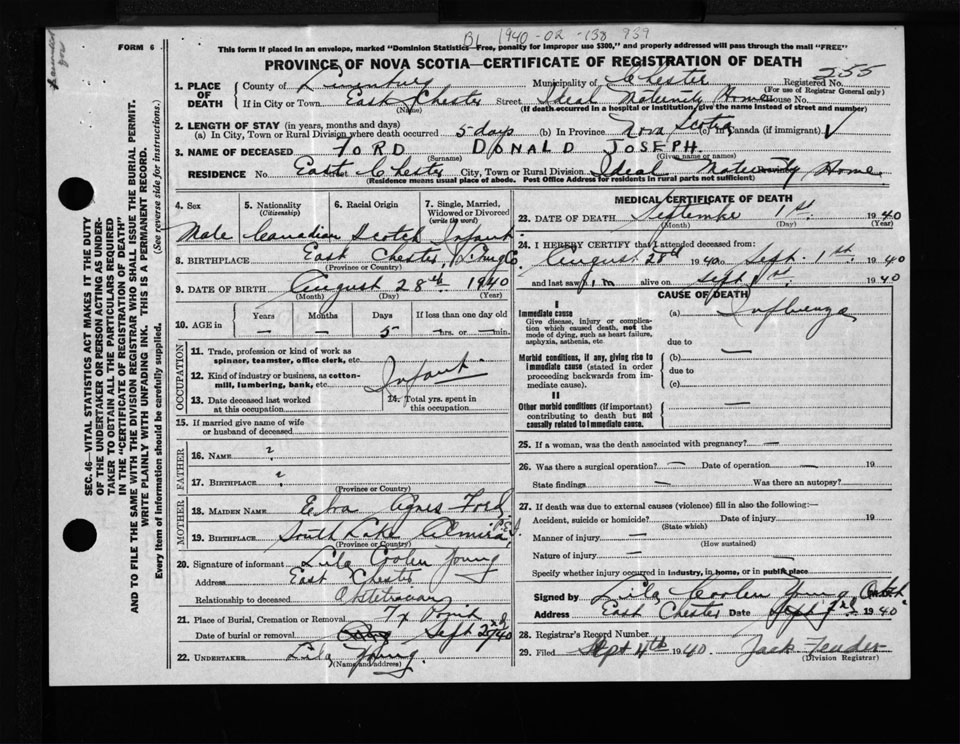 B1 1940-02-138 939
FORM 6
This form if placed in an envelope, marked "Dominion Statistics—Free, penalty for improper use $300," and properly addressed will pass through the mail "FREE"
PROVINCE OF NOVA SCOTIA—CERTIFICATE OF REGISTRATION OF DEATH
SEC. 46—VITAL STATISTICS ACT MAKES IT THE DUTY
OF THE UNDERTAKER OR PERSON ACTING AS UNDER-
TAKER TO OBTAIN ALL THE PARTICULARS REQUIRED
IN THE "CERTIFICATE OF REGISTRATION OF DEATH"
AND TO FILE THE SAME WITH THE DIVISION REGISTRAR WHO SHALL ISSUE THE BURIAL PERMIT.
WRITE PLAINLY WITH UNFADING INK. THIS IS A PERMANENT RECORD.
Every item of Information should be carefully supplied. (See reverse side for instructions.)
1. PLACE OF DEATH
County of Lunenburg Municipality of Chester Registered No. 255
(For use of Registrar General only)
If in City or Town East Chester Street Ideal Maternity Home House No.
(Name) (If death occurred in a hospital or institution, give the name instead of street and number)
2. LENGTH OF STAY (in years, months and days)
(a) In City, Town or Rural Division where death occurred 5 days (b) In Province Nova Scotia (c) In Canada (if immigrant)
3. NAME OF DECEASED FORD DONALD JOSEPH.
(Surname) (Given name or names)
RESIDENCE No. East Chester City, Town or Rural Division Ideal Maternity Home
(Residence means usual place of abode. Post Office Address for residents in rural parts not sufficient)
4. Sex 5. Nationality (Citizenship) 6. Racial Origin 7. Single, Married, Widowed or Divorced (write the word)
Male Canadian Scotch Infant
8. BIRTHPLACE East Chester,
(Province or Country)
9. DATE OF BIRTH August 28th 1940
(Month) (Day) (Year)
10. AGE in Years Months Days If less than one day old
— — 5 —hrs. or —min.
OCCUPATION
11. Trade, profession or kind of work as
spinner, teamster, office clerk, etc.
12. Kind of industry or business, as cotton-
mill, lumbering, bank, etc. Infant
13. Date deceased last worked
at this occupation
14. Total yrs. spent in
this occupation
15. If married give name of wife
or husband of deceased
FATHER
16. NAME ?
17. BIRTHPLACE ?
(Province or Country)
MOTHER
18. MAIDEN NAME Edra Agnes Ford
19. BIRTHPLACE South Lake Elmira, P.E.I.
(Province or Country)
20. Signature of informant Lila Coolen Young
Address East Chester
Relationship to deceased Obstetrician
21. Place of Burial, Cremation or Removal
Date of burial or removal Sept 2nd 1940
22. UNDERTAKER Lila Young.
(Name and address)
MEDICAL CERTIFICATE OF DEATH
23. DATE OF DEATH September 1st. 1940
(Month) (Day) (Year)
24. I HEREBY CERTIFY that I attended deceased from:
August 28th 1940 to Sept. 1st. 1940
and last saw him alive on Sept 1st. 1940
CAUSE OF DEATH
I
Immediate cause
Give disease, injury or complica-
tion which caused death, not the
mode of dying, such as heart failure,
asphyxia, asthenia, etc.
(a) Influenza
due to
Morbid conditions, if any, giving rise to
immediate cause (stated in order
proceeding backwards from im-
mediate cause).
(b) —
due to
(c)
II
Other morbid conditions (if important)
contributing to death but not
causally related to immediate cause. —
25. If a woman, was the death associated with pregnancy? —
26. Was there a surgical operation? — Date of operation — 19
State findings — Was there an autopsy?
27. If death was due to external causes (violence) fill in also the following:—
Accident, suicide or homicide? Date of injury 19
(State which)
Manner of injury —
(How sustained)
Nature of injury —
Specify whether injury occurred in industry, in home, or in public place
Signed by Lila Coolen Young
Address East Chester Date Sept 2nd 1940
28. Registrar's Record Number
29. Filed Sept 4th 1940. Jack
(Division Registrar)